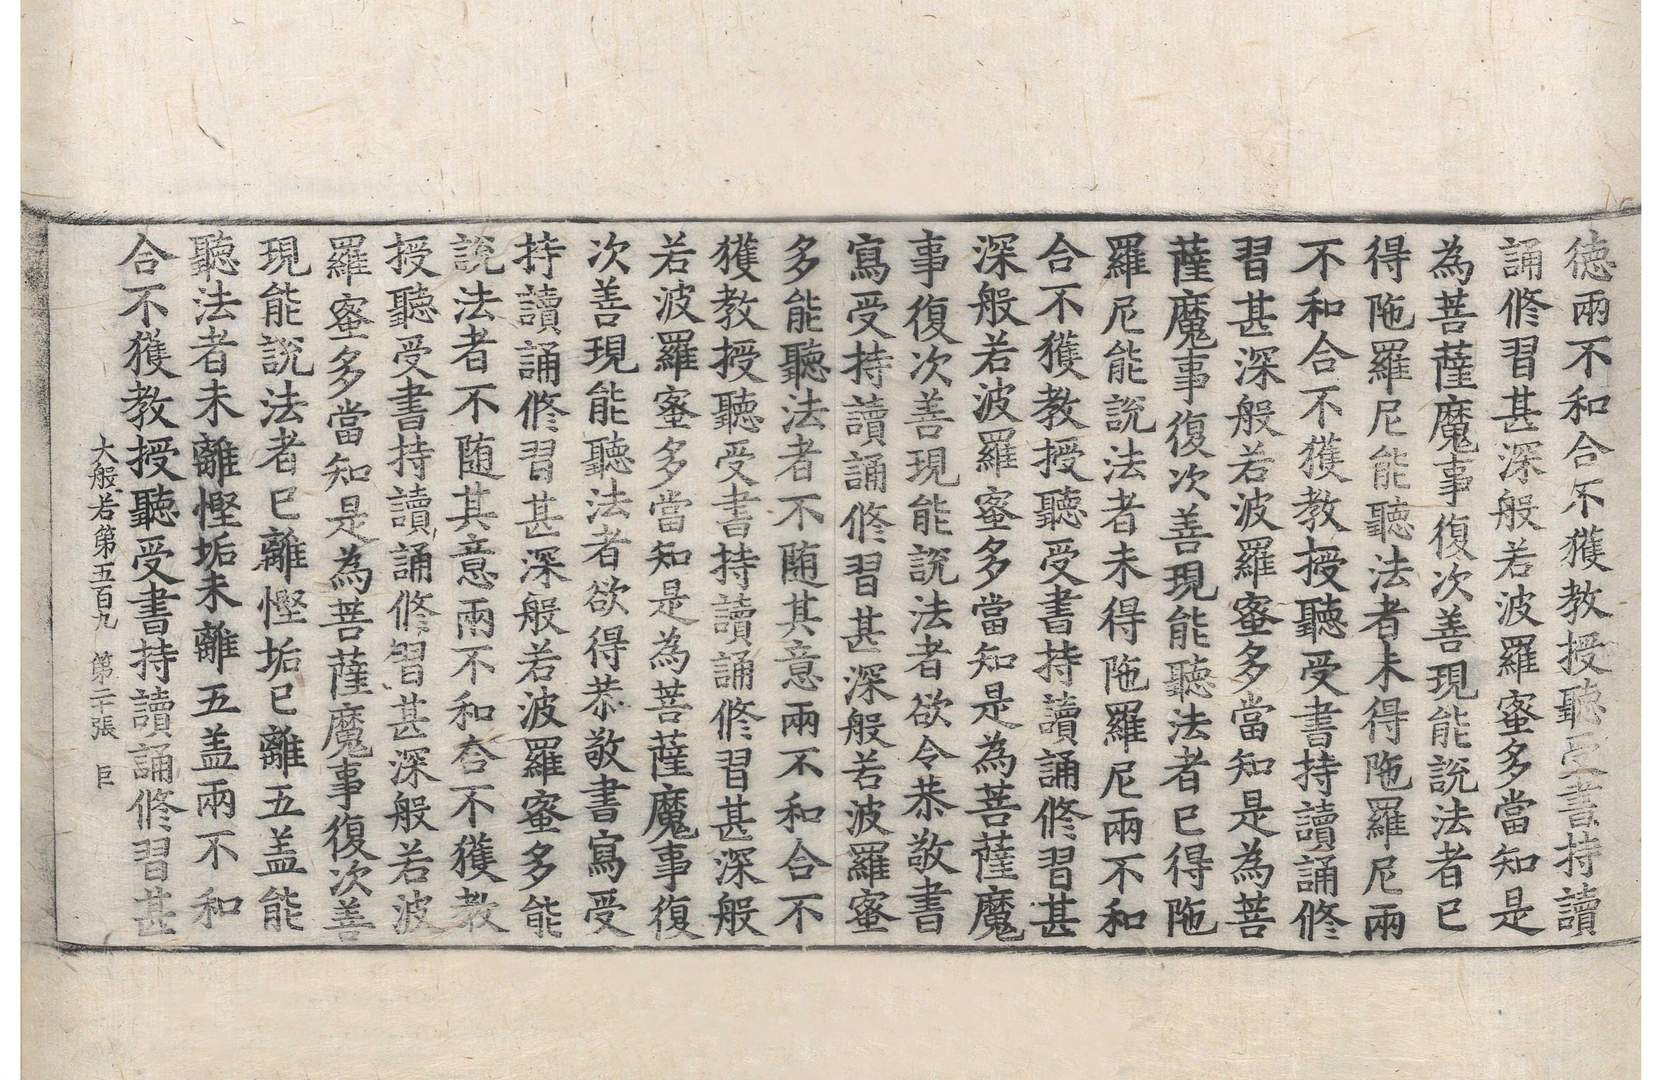 德兩不和合不獲教授聽受書持讀
誦修習甚深般若波羅蜜多當知是
為菩薩魔事復次善現能說法者已
得陁羅尼能聽法者未得陁羅尼兩
不和合不獲教授聽受書持讀誦修
習甚深般若波羅蜜多當知是為菩
薩魔事復次善現能聽法者已得陁
羅尼能說法者未得陁羅尼兩不和
合不獲教授聽受書持讀誦修習甚
深般若波羅蜜多當知是為菩薩魔
事復次善現能說法者欲令恭敬書
寫受持讀誦修習甚深般若波羅蜜
多能聽法者不随其意兩不和合不
獲教授聽受書持讀誦修習甚深般
若波羅蜜多當知是為菩薩魔事復
次善現能聽法者欲得恭敬書寫受
持讀誦修習甚深般若波羅蜜多能
說法者不随其意兩不和合不獲教
授聽受書持讀誦修習甚深般若波
羅蜜多當知是為菩薩魔事復次善
現能說法者已離慳垢已離五盖能
聽法者未離慳垢未離五盖兩不和
合不獲教授聽受書持讀誦修習甚
大般若第五百九 第二十張 巨